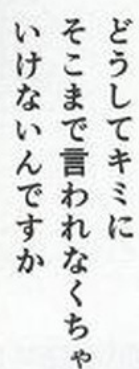 どうしてキミに
そこまで言われなくちゃ
いけないんですか